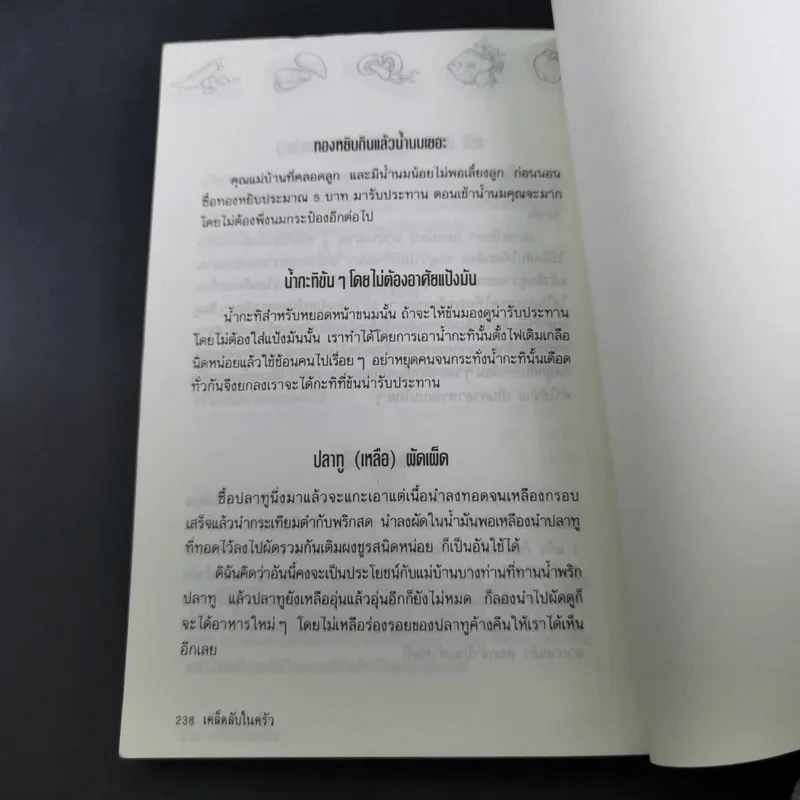 ทองหยิบกินแล้วน้ำนมเยอะ
คุณแม่บ้านที่คลอดลูก และมีน้ำนมน้อยไม่พอเลี้ยงลูก ก่อนนอน
ซื้อทองหยิบประมาณ 5 บาท มารับประทาน ตอนเช้าน้ำนมคุณจะมาก
โดยไม่ต้องพึ่งนมกระป๋องอีกต่อไป
น้ำกะทิข้น ๆ โดยไม่ต้องอาศัยแป้งมัน
น้ำกะทิสำหรับหยอดหน้าขนมนั้น ถ้าจะให้ข้นมองดูน่ารับประทาน
โดยไม่ต้องใส่แป้งมันนั้น เราทำได้โดยการเอาน้ำกะทินั้นตั้งไฟเติมเกลือ
นิดหน่อยแล้วใช้ช้อนคนไปเรื่อย ๆ อย่าหยุดคนจนกระทั่งน้ำกะทินั้นเดือด
ทั่วกันจึงยกลงเราจะได้กะทิที่ข้นน่ารับประทาน
ปลาทู (เหลือ) ผัดเผ็ด
ซื้อปลาทูนึ่งมาแล้วจะแกะเอาแต่เนื้อนำลงทอดจนเหลืองกรอบ
เสร็จแล้วนำกระเทียมตำกับพริกสด นำลงผัดในน้ำมันพอเหลืองนำปลาทู
ที่ทอดไว้ลงไปผัดรวมกันเติมผงชูรสนิดหน่อย ก็เป็นอันใช้ได้
ดิฉันคิดว่าอันนี้คงจะเป็นประโยชน์กับแม่บ้านบางท่านที่ทานน้ำพริก
ปลาทู แล้วปลาทูยังเหลืออุ่นแล้วอุ่นอีกก็ยังไม่หมด ก็ลองนำไปผัดดูก็
จะได้อาหารใหม่ ๆ โดยไม่เหลือร่องรอยของปลาทูค้างคืนให้เราได้เห็น
อีกเลย
238 เคล็ดลับในครัว